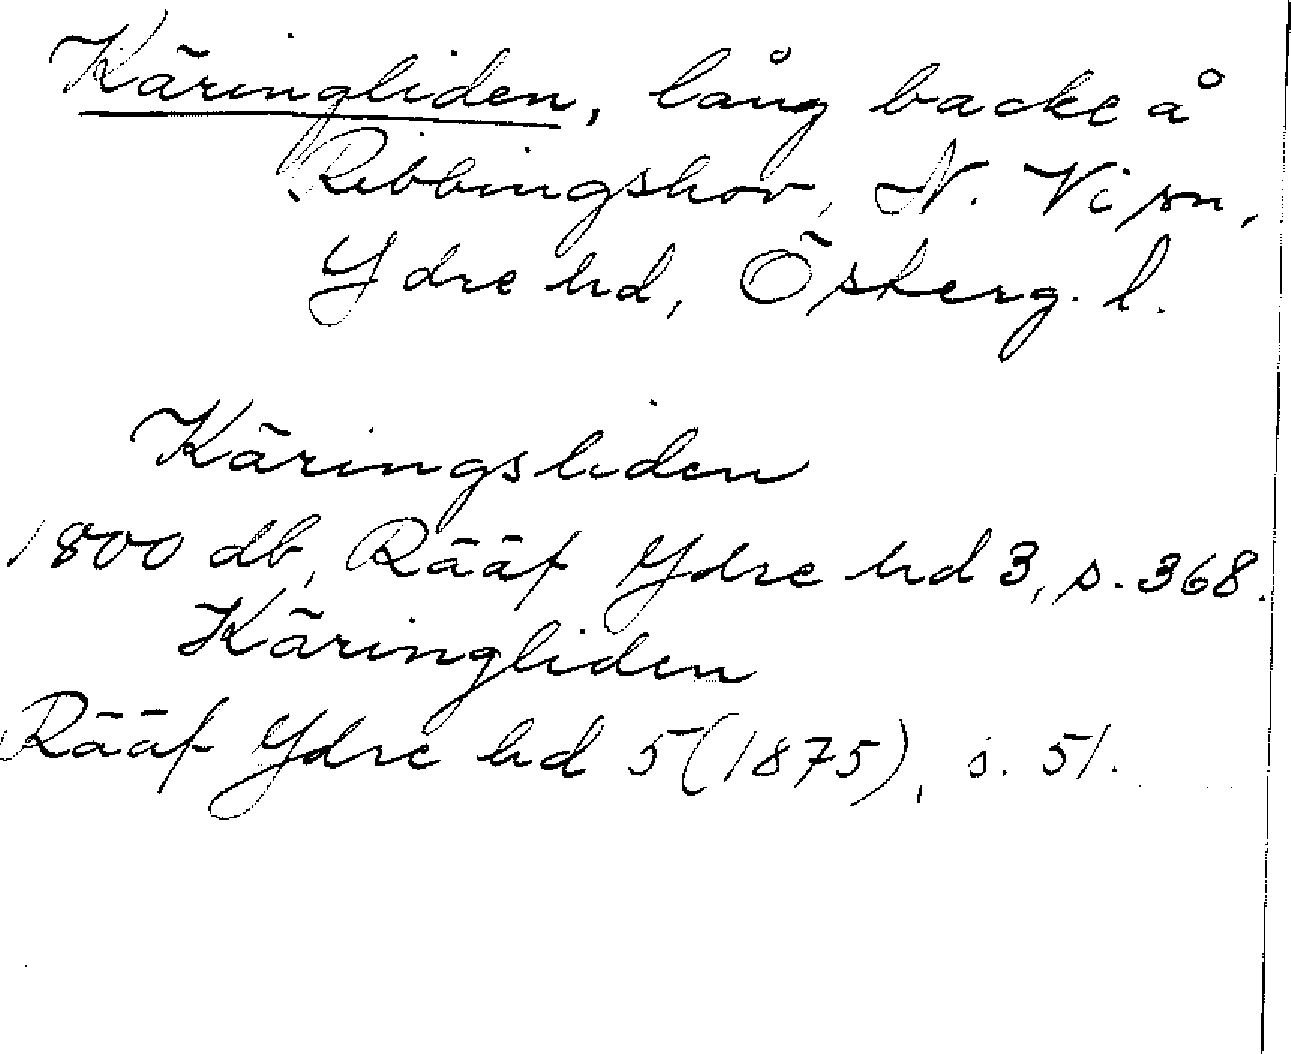 Käringliden, lång backe å
Ribbingshov, N. Vi sn,
Ydre hd, Österg. l.
Käringsliden
1800 db, Rääf Ydre hd 3, s. 368.
Käringliden
Rääf Ydre hd 5 (1875), s. 51.